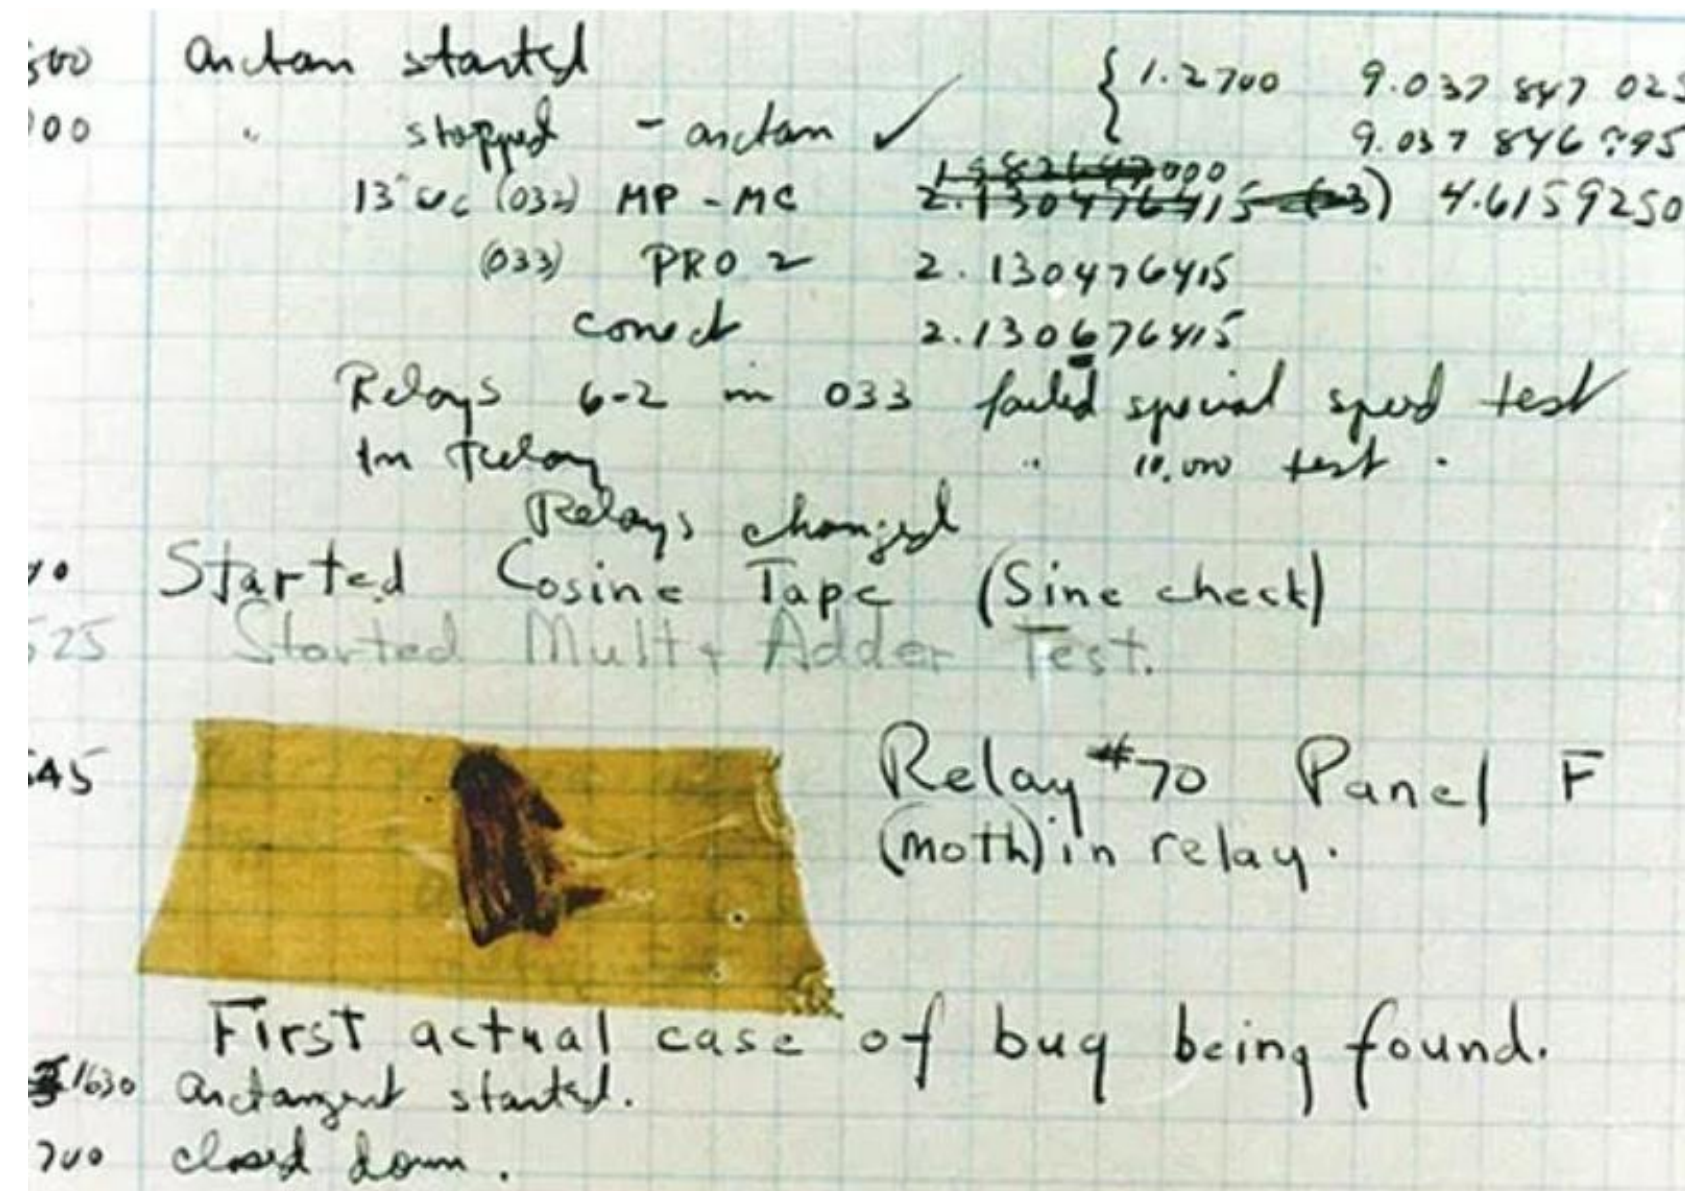 800 arctan started { 1.2700 9.037 847 025
900 " stopped - arctan ✓ 9.037 846 995
13" uc (032) MP - MC 1.982647000 2.130476415 (-3) 4.6159250
(033) PRO 2 2.130476415
correct 2.130676415
Relays 6-2 in 033 failed special speed test
In relay " 10.000 test .
Relays changed
Started Cosine Tape (Sine check)
525 Started Mult + Adder Test.
545 Relay #70 Panel F
(moth) in relay.
First actual case of bug being found.
1630 arctangent started.
700 closed down.